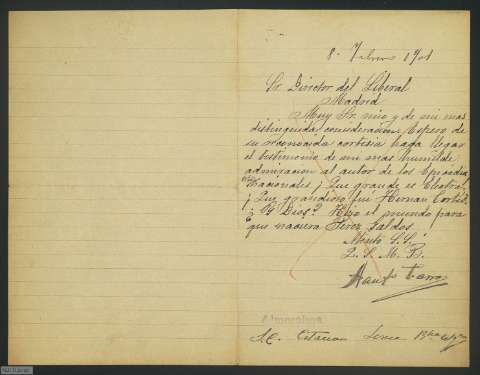 8. Febrero 1901
Sr. Director del Liberal
Madrid
Muy Sr. mio y de mi mas
distinguida consideracion: Espero de
su reconocida cortesia haga llegar
el testimonio de mi mas humilde
admiracion al autor de los Episodios
Nacionales ¡Que grande es Electra!,
¡Que grandioso fue Hernan Cortés!
¿Y Dios? Hizo el mundo para
que naciera Perez Galdos
Atento S. S.
Q. S. M. B.
S.C. Estacion